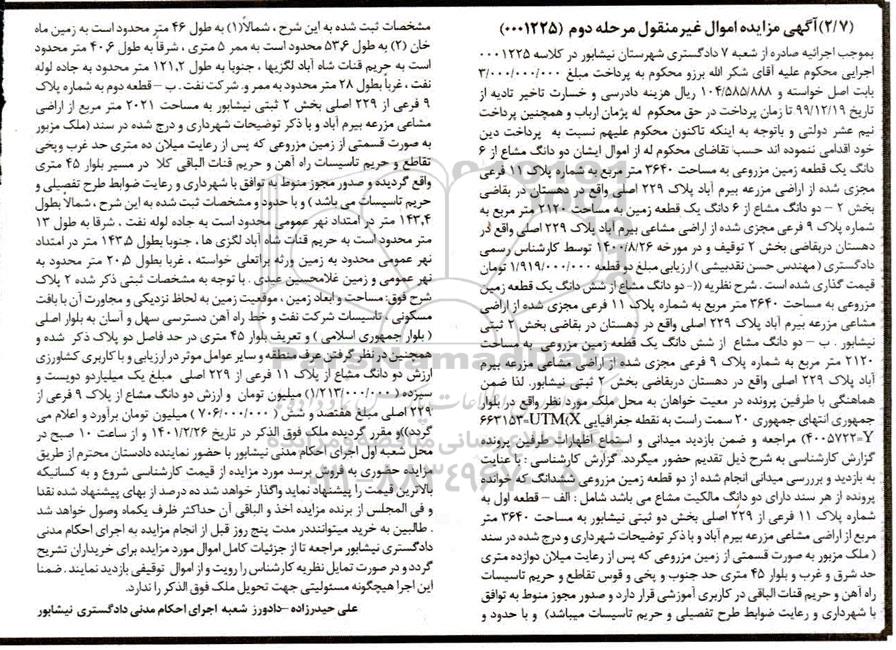 (۲/۷) آگهی مزایده اموال غیرمنقول مرحله دوم (۰۰۰۱۲۲۵)
بموجب اجرائیه صادره از شعبه ۷ دادگستری شهرستان نیشابور در کلاسه ۰۰۰۱۲۲۵
اجرایی محکوم علیه آقای شکر اله برزو محکوم به پرداخت مبلغ ۳/۰۰۰/۰۰۰/۰۰۰
بابت اصل خواسته و ۱۰۴/۵۸۵/۸۸۸ ریال هزینه دادرسی و خسارت تاخیر تادیه از
تاریخ ۹۹/۱۲/۱۹ تا زمان پرداخت در حق محکوم له پژمان ارباب و همچنین پرداخت
نیم عشر دولتی و باتوجه به اینکه تاکنون محکوم علیهم نسبت به پرداخت دین
خود اقدامی ننموده اند حسب تقاضای محکوم له از اموال ایشان دو دانگ مشاع از ۶
دانگ یک قطعه زمین مزروعی به مساحت ۳۶۴۰ متر مربع به شماره پلاک ۱۱ فرعی
مجزی شده از اراضی مزرعه بیرم آباد پلاک ۲۲۹ اصلی واقع در دهستان در بقاضی
بخش ۲ – دو دانگ مشاع از ۶ دانگ یک قطعه زمین به مساحت ۲۱۲۰ متر مربع به
شماره پلاک ۹ فرعی مجزی شده از اراضی مشاعی بیرم آباد پلاک ۲۲۹ اصلی واقع در
دهستان دربقاضی بخش ۲ توقیف و در مورخه ۱۴۰۰/۸/۲۶ توسط کارشناس رسمی
دادگستری (مهندس حسن نقدبیشی) ارزیابی مبلغ دو قطعه ۱/۹۱۹/۰۰۰/۰۰۰ تومان
قیمت گذاری شده است . شرح نظریه ((- دو دانگ مشاع از شش دانگ یک قطعه زمین
مزروعی به مساحت ۳۶۴۰ متر مربع به شماره پلاک ۱۱ فرعی مجزی شده از اراضی
مشاعی مزرعه بیرم آباد پلاک ۲۲۹ اصلی واقع در دهستان در بقاضی بخش ۲ ثبتی
نیشابور . ب – دو دانگ مشاع از شش دانگ یک قطعه زمین مزروعی به مساحت
۲۱۲۰ متر مربع به شماره پلاک ۹ فرعی مجزی شده از اراضی مشاعی مزرعه بیرم
آباد پلاک ۲۲۹ اصلی واقع در دهستان دربقاضی بخش ۲ ثبتی نیشابور. لذا ضمن
هماهنگی با طرفین پرونده در معیت خواهان به محل ملک مورد نظر واقع در بلوار
جمهوری انتهای جمهوری ۲۰ سمت راست به نقطه جغرافیایی UTM(X=۶۶۳۱۵۳
Y=۴۰۰۵۷۲۲) مراجعه و ضمن بازدید میدانی و استماع اظهارات طرفین پرونده
گزارش کارشناسی به شرح ذیل تقدیم حضور میگردد. گزارش کارشناسی : با عنایت
به بازدید و برررسی میدانی انجام شده از دو قطعه زمین مزروعی ششدانگ که خوانده
پرونده از هر سند دارای دو دانگ مالکیت مشاع می باشد شامل : الف – قطعه اول به
شماره پلاک ۱۱ فرعی از ۲۲۹ اصلی بخش دو ثبتی نیشابور به مساحت ۳۶۴۰ متر
مربع از اراضی مشاعی مزرعه بیرم آباد و با ذکر توضیحات شهرداری و درج شده در سند
( ملک مزبور به صورت قسمتی از زمین مزروعی که پس از رعایت میلان دوازده متری
حد شرق و غرب و بلوار ۴۵ متری حد جنوب و پخی و قوس تقاطع و حریم تاسیسات
راه آهن و حریم قنات الباقی در کاربری آموزشی قرار دارد و صدور مجوز منوط به توافق
با شهرداری و رعایت ضوابط طرح تفصیلی و حریم تاسیسات میباشد) و با حدود و
مشخصات ثبت شده به این شرح ، شمالاً(۱) به طول ۴۶ متر محدود است به زمین ماه
خان (۲) به طول ۵۳٫۶ محدود است به ممر ۵ متری ، شرقاً به طول ۴۰٫۶ متر محدود
است به حریم قنات شاه آباد لگزیها ، جنوبا به طول ۱۲۱٫۲ متر محدود به جاده لوله
نفت ، غرباً بطول ۲۸ متر محدود به ممر و. شرکت نفت . ب – قطعه دوم به شماره پلاک
۹ فرعی از ۲۲۹ اصلی بخش ۲ ثبتی نیشابور به مساحت ۲۰۲۱ متر مربع از اراضی
مشاعی مزرعه بیرم آباد و با ذکر توضیحات شهرداری و درج شده در سند (ملک مزبور
به صورت قسمتی از زمین مزروعی که پس از رعایت میلان ده متری حد غرب وپخی
تقاطع و حریم تاسیسات راه آهن و حریم قنات الباقی کلا در مسیر بلوار ۴۵ متری
واقع گردیده و صدور مجوز منوط به توافق با شهرداری و رعایت ضوابط طرح تفصیلی و
حریم تاسیسات می باشد ) و با حدود و مشخصات ثبت شده به این شرح ، شمالاً بطول
۱۴۳٫۴ متر در امتداد نهر عمومی محدود است به جاده لوله نفت ، شرقا به طول ۱۳
متر محدود است به حریم قنات شاه آباد لگزی ها ، جنوبا بطول ۱۴۳٫۵ متر در امتداد
نهر عمومی محدود به زمین ورثه براتعلی خواسته ، غربا بطول ۲۰٫۵ متر محدود به
نهر عمومی و زمین غلامحسین عبدی . با توجه به مشخصات ثبتی ذکر شده ۲ پلاک
شرح فوق: مساحت و ابعاد زمین ، موقعیت زمین به لحاظ نزدیکی و مجاورت آن با بافت
مسکونی ، تاسیسات شرکت نفت و خط راه آهن دسترسی سهل و آسان به بلوار اصلی
( بلوار جمهوری اسلامی ) و تعریف بلوار ۴۵ متری در حد فاصل دو پلاک ذکر شده و
همچنین در نظر گرفتن عرف منطقه و سایر عوامل موثر در ارزیابی و با کاربری کشاورزی
ارزش دو دانگ مشاع از پلاک ۱۱ فرعی از ۲۲۹ اصلی مبلغ یک میلیاردو دویست و
سیزده (۱/۲۱۳/۰۰۰/۰۰۰) میلیون تومان و ارزش دو دانگ مشاع از پلاک ۹ فرعی از
۲۲۹ اصلی مبلغ هفتصد و شش ( ۷۰۶/۰۰۰/۰۰۰ ) میلیون تومان برآورد و اعلام می
گردد))و مقرر گردیده ملک فوق الذکر در تاریخ ۱۴۰۱/۲/۲۶ و از ساعت ۱۰ صبح در
محل شعبه اول اجرای احکام مدنی نیشابور با حضور نماینده دادستان محترم از طریق
مزایده حضوری به فروش برسد مورد مزایده از قیمت کارشناسی شروع و به کسانیکه
بالاترین قیمت را پیشنهاد نماید واگذار خواهد شد ده درصد از بهای پیشنهاد شده نقدا
و فی المجلس از برنده مزایده اخذ و الباقی آن حداکثر ظرف یکماه وصول خواهد شد
. طالبین به خرید میتواننددر مدت پنج روز قبل از انجام مزایده به اجرای احکام مدنی
دادگستری نیشابور مراجعه تا از جزئیات کامل اموال مورد مزایده برای خریداران تشریح
گردد و در صورت تمایل نظریه کارشناس را رویت و از اموال توقیفی بازدید نمایند . ضمنا
این اجرا هیچگونه مسئولیتی جهت تحویل ملک فوق الذکر را ندارد.
علی حیدرزاده –دادورز شعبه اجرای احکام مدنی دادگستری نیشابور